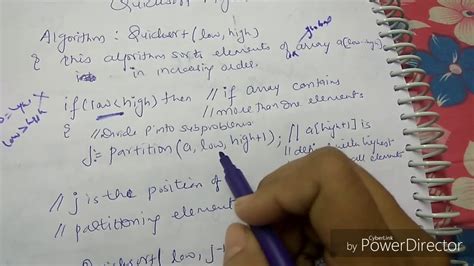 Quicksort
Algorithm : Quicksort (low, high)
{ this algorithm sorts elements of a array a[low-high]
in increasing order.
if (low<high) then // if array contains
more than one elements
{ // Divide P into subproblems
j= partition (a, low, high+1); // a[high+1] is
defined with highest
all elements
// j is the position of
// partitioning element
Quicksort ( low, j-
CyberLink
by PowerDirector